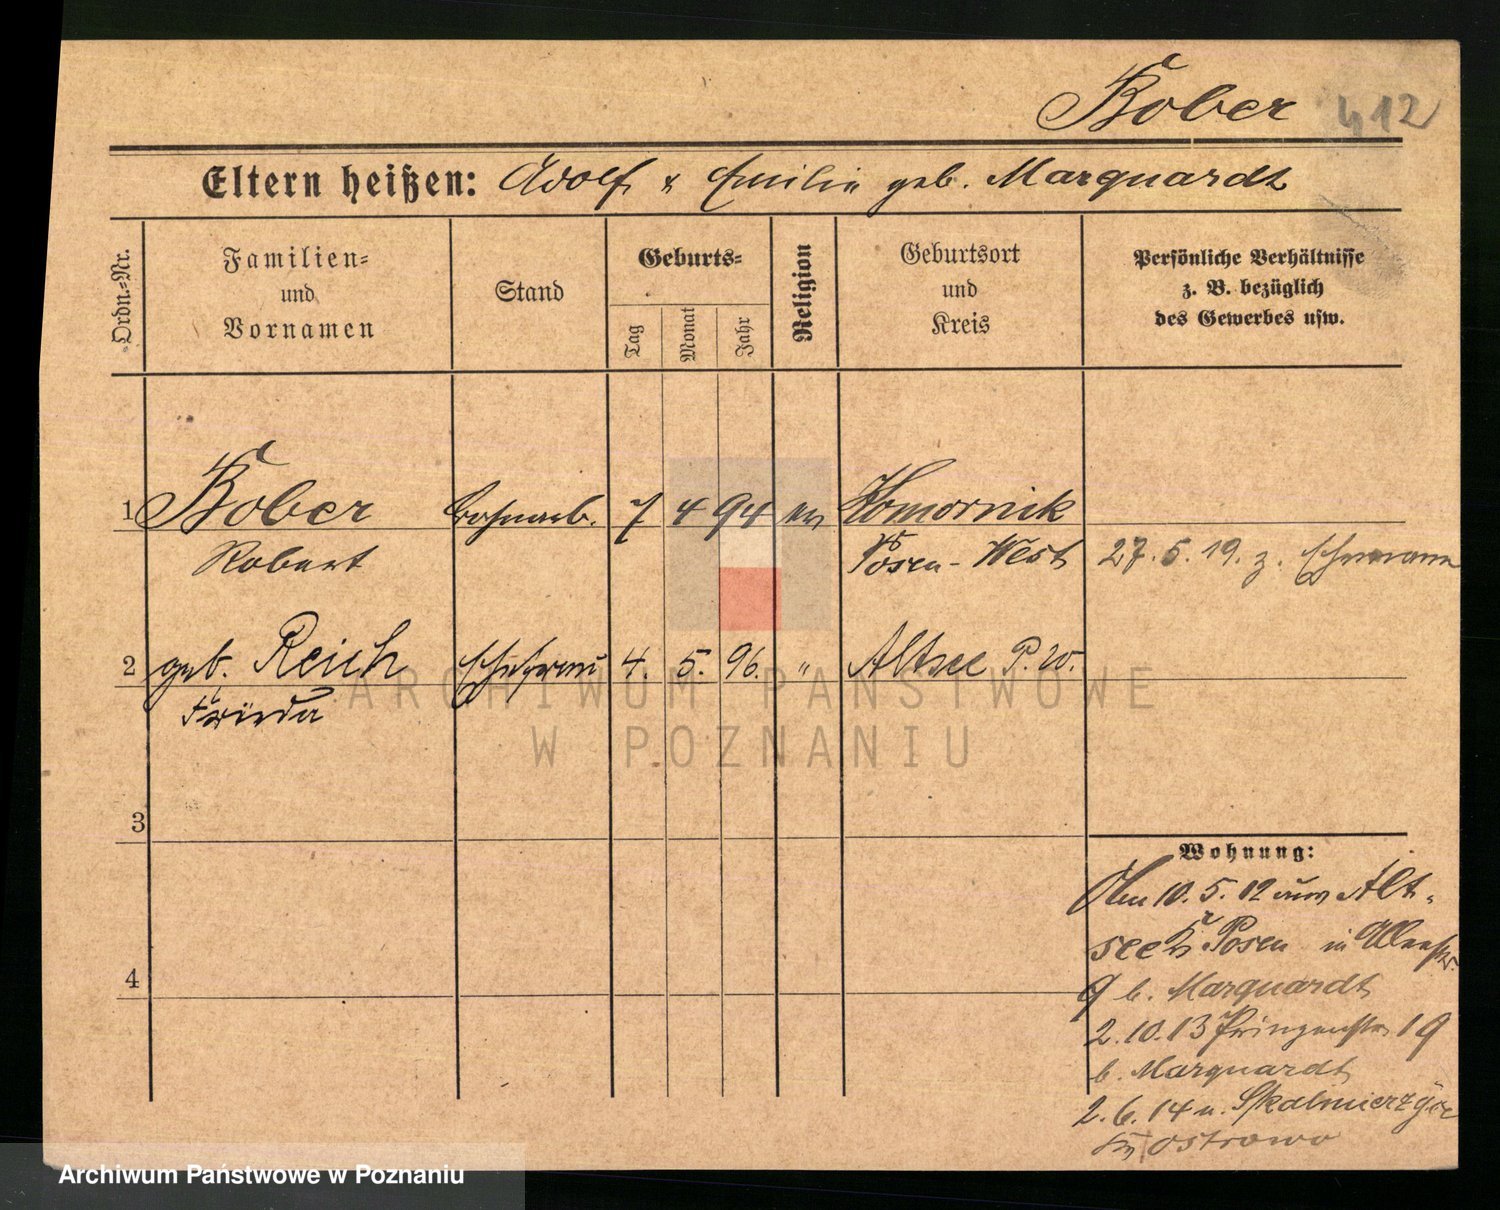 Kober 412
Eltern heißen: Adolf u Emilie geb. Marquardt
Ordn.-Nr.
Familien-
und
Vornamen
Stand
Geburts-
Tag
Monat
Jahr
Religion
Geburtsort
und
Kreis
Persönliche Verhältnisse
z. B. bezüglich
des Gewerbes usw.
1 Kober 7 4 94 ev Komornik
Robert Posen-West 27. 5. 19. z. Ehemann
2 geb. Reich Ehefrau 4. 5. 96. " Altsee P. W.
Frieda
ARCHIWUM PAŃSTWOWE
W POZNANIU
3
4
Wohnung:
10. 5. 12 aus Alt-
see Kr Posen in
9 b. Marquardt
2. 10. 13 Prinzenstr 19
b. Marquardt
2. 6. 14 n. Skalmierzyce
Kr Ostrowo
Archiwum Państwowe w Poznaniu